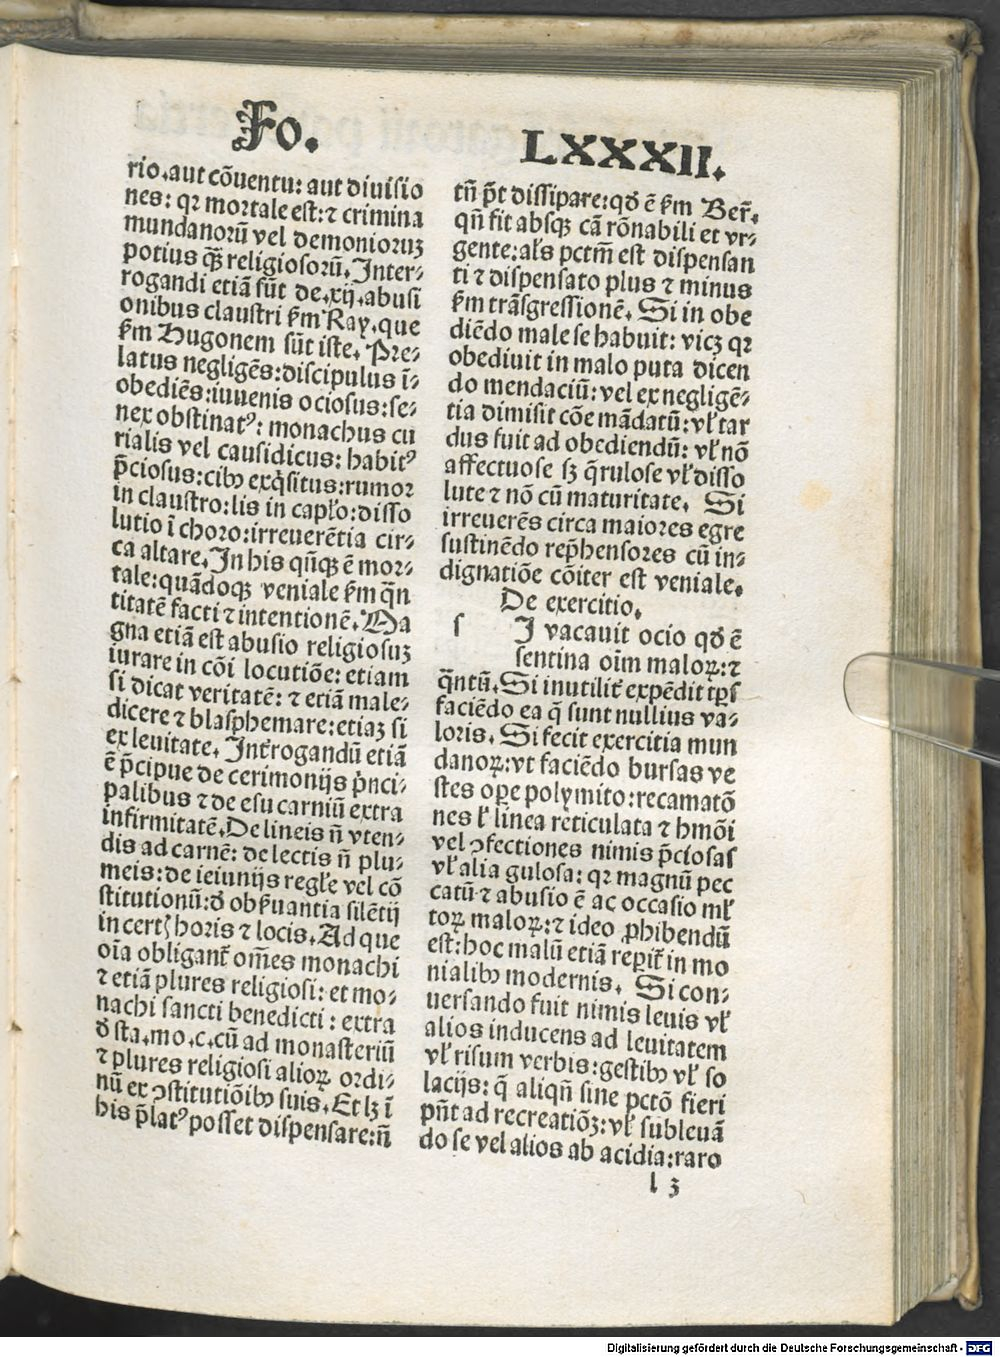 Fo. LXXXII.
rio.aut cōuentu: aut diuisio
nes: qꝛ mortale est:⁊ crimina
mundanoꝛū vel demonioruʒ
potius q̃ꝫ religiosoꝛū.Inter⸗
rogandi etiā sūt de.xij.abusi
onibus claustri ẜm Ray.que
ẜm Hugonem sūt iste. Pre⸗
latus negligēs:discipulus ī⸗
obediēs:iuuenis ociosus:se⸗
nex obstinatꝰ: monachus cu
rialis vel causidicus: habitꝰ
p̄ciosus:cibꝰ exq̇situs:rumoꝛ
in claustro:lis in capło:disso
lutio ī choꝛo:irreuerētia cir⸗
ca altare.In his qn̄qꝫ ē moꝛ⸗
tale:quādoqꝫ veniale ẜm q̄n
titatē facti ⁊ intentionē.Ma
gna etiā est abusio religiosuʒ
iurare in cōi locutiōe: etiam
si dicat veritatē: ⁊ etiā male⸗
dicere ⁊ blasphemare:etiaʒ si
ex leuitate. Int̉rogandū etiā
ē p̄cipue de cerimonijs pꝛinci⸗
palibus ⁊ de esu carniū extra
infirmitatē.De lineis n̄ vten⸗
dis ad carnē: de lectis n̄ plu⸗
meis:de ieiunijs regłe vel cō
stitutionū:ð obẜuantia silētij
in certꝭ hoꝛis ⁊ locis.Ad que
oīa obligant̉ om̄es monachi
⁊ etiā plures religiosi: et mo⸗
nachi sancti benedicti: extra
ð sta.mo.c.cū ad monasteriū
⁊ plures religiosi alioꝝ oꝛdi⸗
nū ex ꝯstitutiōibꝰ suis.Et lꝫ ī
his p̄latꝰ posset dispensare:n̄
tn̄ pt̄ dissipare:qð ē ẜm Ber̄.
qn̄ fit absqꝫ cā rōnabili et vr⸗
gente:ałs pctm̄ est dispensan
ti ⁊ dispensato plus ⁊ minus
ẜm trāsgressionē. Si in obe
diēdo male se habuit: vicꝫ qꝛ
obediuit in malo puta dicen
do mendaciū: vel ex negligē⸗
tia dimisit cōe mādatū: vł tar
dus fuit ad obediendū: vł nō
affectuose sꝫ q̄rulose vł disso
lute ⁊ nō cū maturitate. Si
irreuerēs circa maioꝛes egre
sustinēdo rep̄hensoꝛes cū in⸗
dignatiōe cōiter est veniale.
De exercitio.
s I vacauit ocio qð ē
sentina oīm maloꝝ:⁊
q̄ntū.Si inutilit̉ expēdit tp̄s
faciēdo ea q̄ sunt nullius va⸗
loꝛis. Si fecit exercitia mun
danoꝝ:vt faciēdo bursas ve
stes oꝑe polymito:recamatō
nes ł linea reticulata ⁊ hmōi
vel ꝯfectiones nimis p̄ciosas
vł alia gulosa: qꝛ magnū pec
catū ⁊ abusio ē ac occasio mł
toꝝ maloꝝ:⁊ ideo ꝓhibendū
est:hoc malū etiā reꝑit̉ in mo
nialibꝰ modernis. Si con⸗
uersando fuit nimis leuis vł
alios inducens ad leuitatem
vł risum verbis:gestibꝰ vł so
lacijs: q̄ aliqn̄ sine pctō fieri
pn̄t ad recreatiōʒ: vł subleuā
do se vel alios ab acidia:raro
l 3
Digitalisierung gefördert durch die Deutsche Forschungsgemeinschaft - DFG